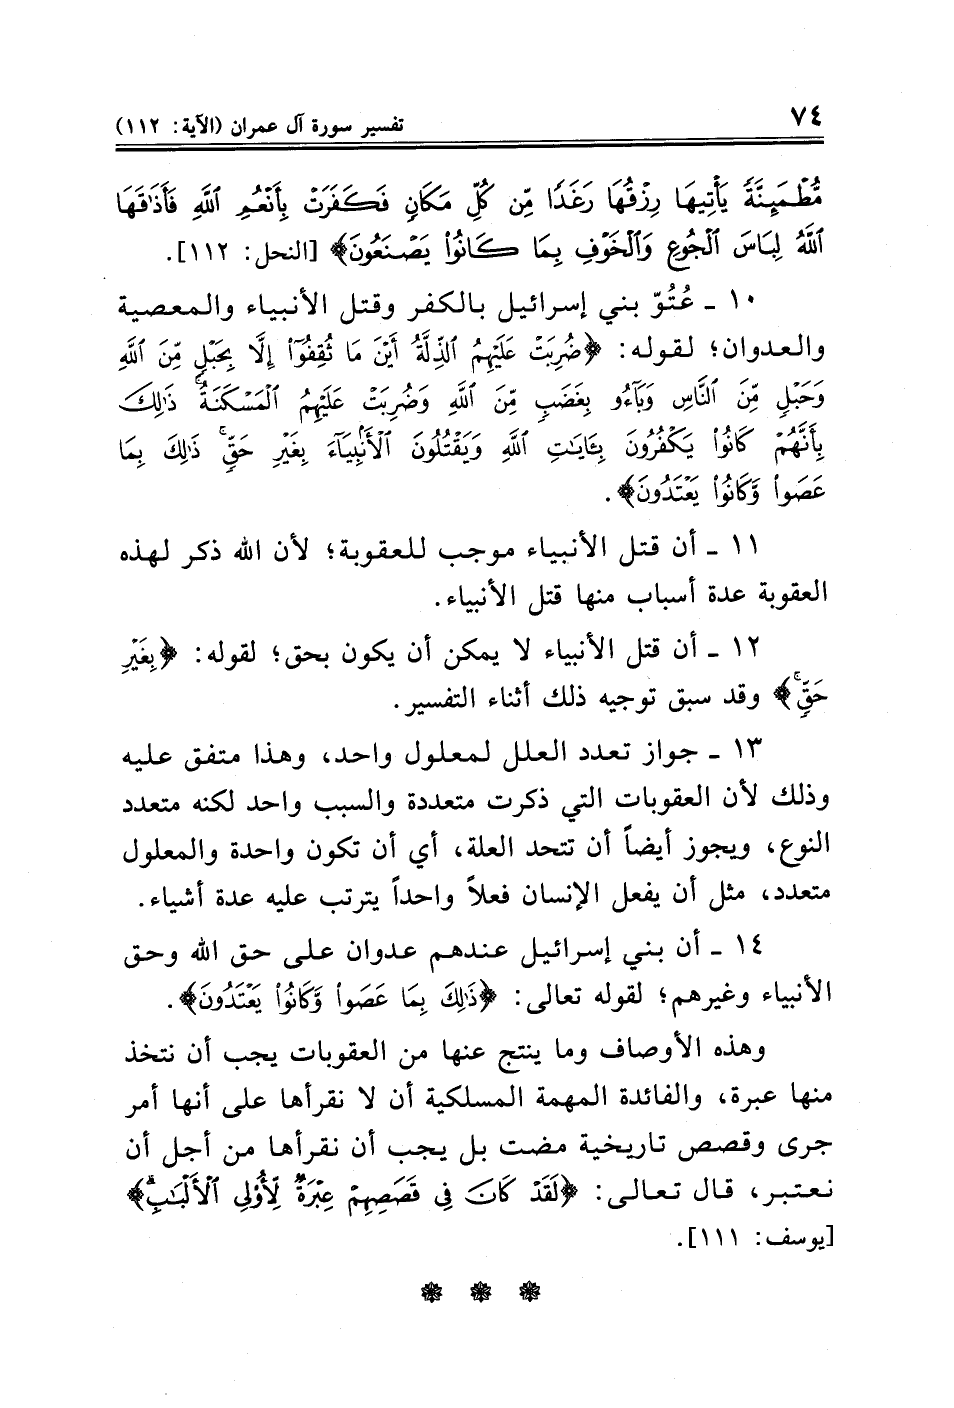 ٧٤
تفسير سورة آل عمران (الآية: ١١٢)
مُّطْمَئِنَّةً يَأْتِيهَا رِزْقُهَا رَغَدًا مِّن كُلِّ مَكَانٍ فَكَفَرَتْ بِأَنْعُمِ ٱللَّهِ فَأَذَٰقَهَا
ٱللَّهُ لِبَاسَ ٱلْجُوعِ وَٱلْخَوْفِ بِمَا كَانُوا۟ يَصْنَعُونَ﴾ [النحل: ١١٢].
١٠ ـ عُتُوّ بني إسرائيل بالكفر وقتل الأنبياء والمعصية
والعدوان؛ لقوله: ﴿ضُرِبَتْ عَلَيْهِمُ ٱلذِّلَّةُ أَيْنَ مَا ثُقِفُوٓا۟ إِلَّا بِحَبْلٍ مِّنَ ٱللَّهِ
وَحَبْلٍ مِّنَ ٱلنَّاسِ وَبَآءُو بِغَضَبٍ مِّنَ ٱللَّهِ وَضُرِبَتْ عَلَيْهِمُ ٱلْمَسْكَنَةُ ۚ ذَٰلِكَ
بِأَنَّهُمْ كَانُوا۟ يَكْفُرُونَ بِـَٔايَٰتِ ٱللَّهِ وَيَقْتُلُونَ ٱلْأَنۢبِيَآءَ بِغَيْرِ حَقٍّ ۚ ذَٰلِكَ بِمَا
عَصَوا۟ وَّكَانُوا۟ يَعْتَدُونَ﴾.
١١ ـ أن قتل الأنبياء موجب للعقوبة؛ لأن الله ذكر لهذه
العقوبة عدة أسباب منها قتل الأنبياء.
١٢ ـ أن قتل الأنبياء لا يمكن أن يكون بحق؛ لقوله: ﴿بِغَيْرِ
حَقٍّ ۚ﴾ وقد سبق توجيه ذلك أثناء التفسير.
١٣ ـ جواز تعدد العلل لمعلول واحد، وهذا متفق عليه
وذلك لأن العقوبات التي ذكرت متعددة والسبب واحد لكنه متعدد
النوع، ويجوز أيضاً أن تتحد العلة، أي أن تكون واحدة والمعلول
متعدد، مثل أن يفعل الإنسان فعلاً واحداً يترتب عليه عدة أشياء.
١٤ ـ أن بني إسرائيل عندهم عدوان على حق الله وحق
الأنبياء وغيرهم؛ لقوله تعالى: ﴿ذَٰلِكَ بِمَا عَصَوا۟ وَّكَانُوا۟ يَعْتَدُونَ﴾.
وهذه الأوصاف وما ينتج عنها من العقوبات يجب أن نتخذ
منها عبرة، والفائدة المهمة المسلكية أن لا نقرأها على أنها أمر
جرى وقصص تاريخية مضت بل يجب أن نقرأها من أجل أن
نعتبر، قال تعالى: ﴿لَقَدْ كَانَ فِى قَصَصِهِمْ عِبْرَةٌ لِّأُو۟لِى ٱلْأَلْبَٰبِ ۗ﴾
[يوسف: ١١١].